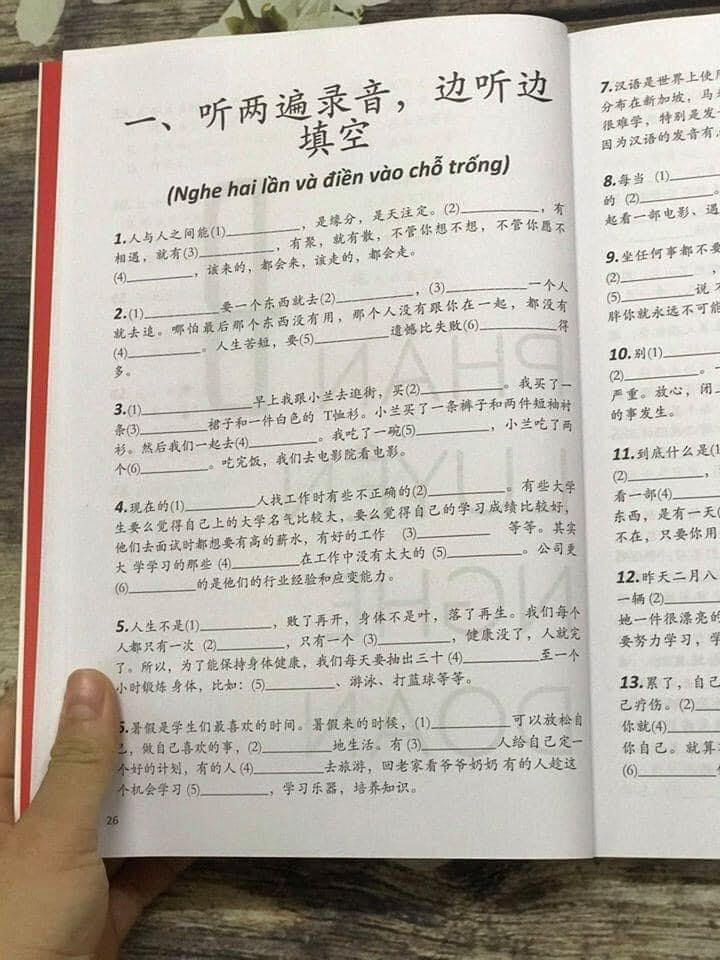 一、听两遍录音，边听边
填空
(Nghe hai lần và điền vào chỗ trống)
1.人与人之间能(1)__________，是缘分，是天注定。(2)__________，有
相遇，就有(3)__________，有聚，就有散，不管你想不想，不管你愿不
(4)__________，该来的，都会来，该走的，都会走。
2.(1)__________要一个东西就去(2)__________，(3)__________一个人
就去追。哪怕最后那个东西没有用，那个人没有跟你在一起，都没有
(4)__________。人生苦短，要(5)__________遗憾比失败(6)__________得
多。
3.(1)__________早上我跟小兰去逛街，买(2)__________。我买了一
条(3)__________裙子和一件白色的 T恤衫。小兰买了一条裤子和两件短袖衬
衫。然后我们一起去(4)__________。我吃了一碗(5)__________，小兰吃了两
个(6)__________。吃完饭，我们去电影院看电影。
4.现在的(1)__________人找工作时有些不正确的(2)__________。有些大学
生要么觉得自己上的大学名气比较大，要么觉得自己的学习成绩比较好，
他们去面试时都想要有高的薪水，有好的工作 (3)__________ 等等。其实
大 学学习的那些 (4)__________在工作中没有太大的 (5)__________。公司更
(6)__________的是他们的行业经验和应变能力。
5.人生不是(1)__________，败了再开，身体不是叶，落了再生。我们每个
人都只有一次 (2)__________，只有一个 (3)__________，健康没了，人就完
了。所以，为了能保持身体健康，我们每天要抽出三十 (4)__________至一个
小时锻炼 身体，比如：(5)__________、游泳、打蓝球等等。
6.暑假是学生们最喜欢的时间。暑假来的时候，(1)__________可以放松自
己，做自己喜欢的事，(2)__________地生活。有 (3)__________人给自己定一
个好的计划，有的人 (4)__________去旅游，回老家看爷爷奶奶 有的人趁这
个机会学习 (5)__________，学习乐器，培养知识。
26
7.汉语是世界上使用
分布在新加坡，马
很难学，特别是发
因为汉语的发音有
8.每当 (1)__________
的 (2)__________
起看一部电影、遇
9.坐任何事都不要
(2)__________，
(5)__________说 不
胖你就永远不可能
10.别(1)__________
(2)__________。一
严重。放心，闭
的事发生。
11.到底什么是(1
(2)__________，
看一部(4)__________
东西，是有一天(
不在，只要你用
12.昨天二月八
一辆 (2)__________
她一件很漂亮的
要努力学习，学
13.累了，自己
己疗伤。(2)__________
你就(4)__________
你自己。就算
(6)__________